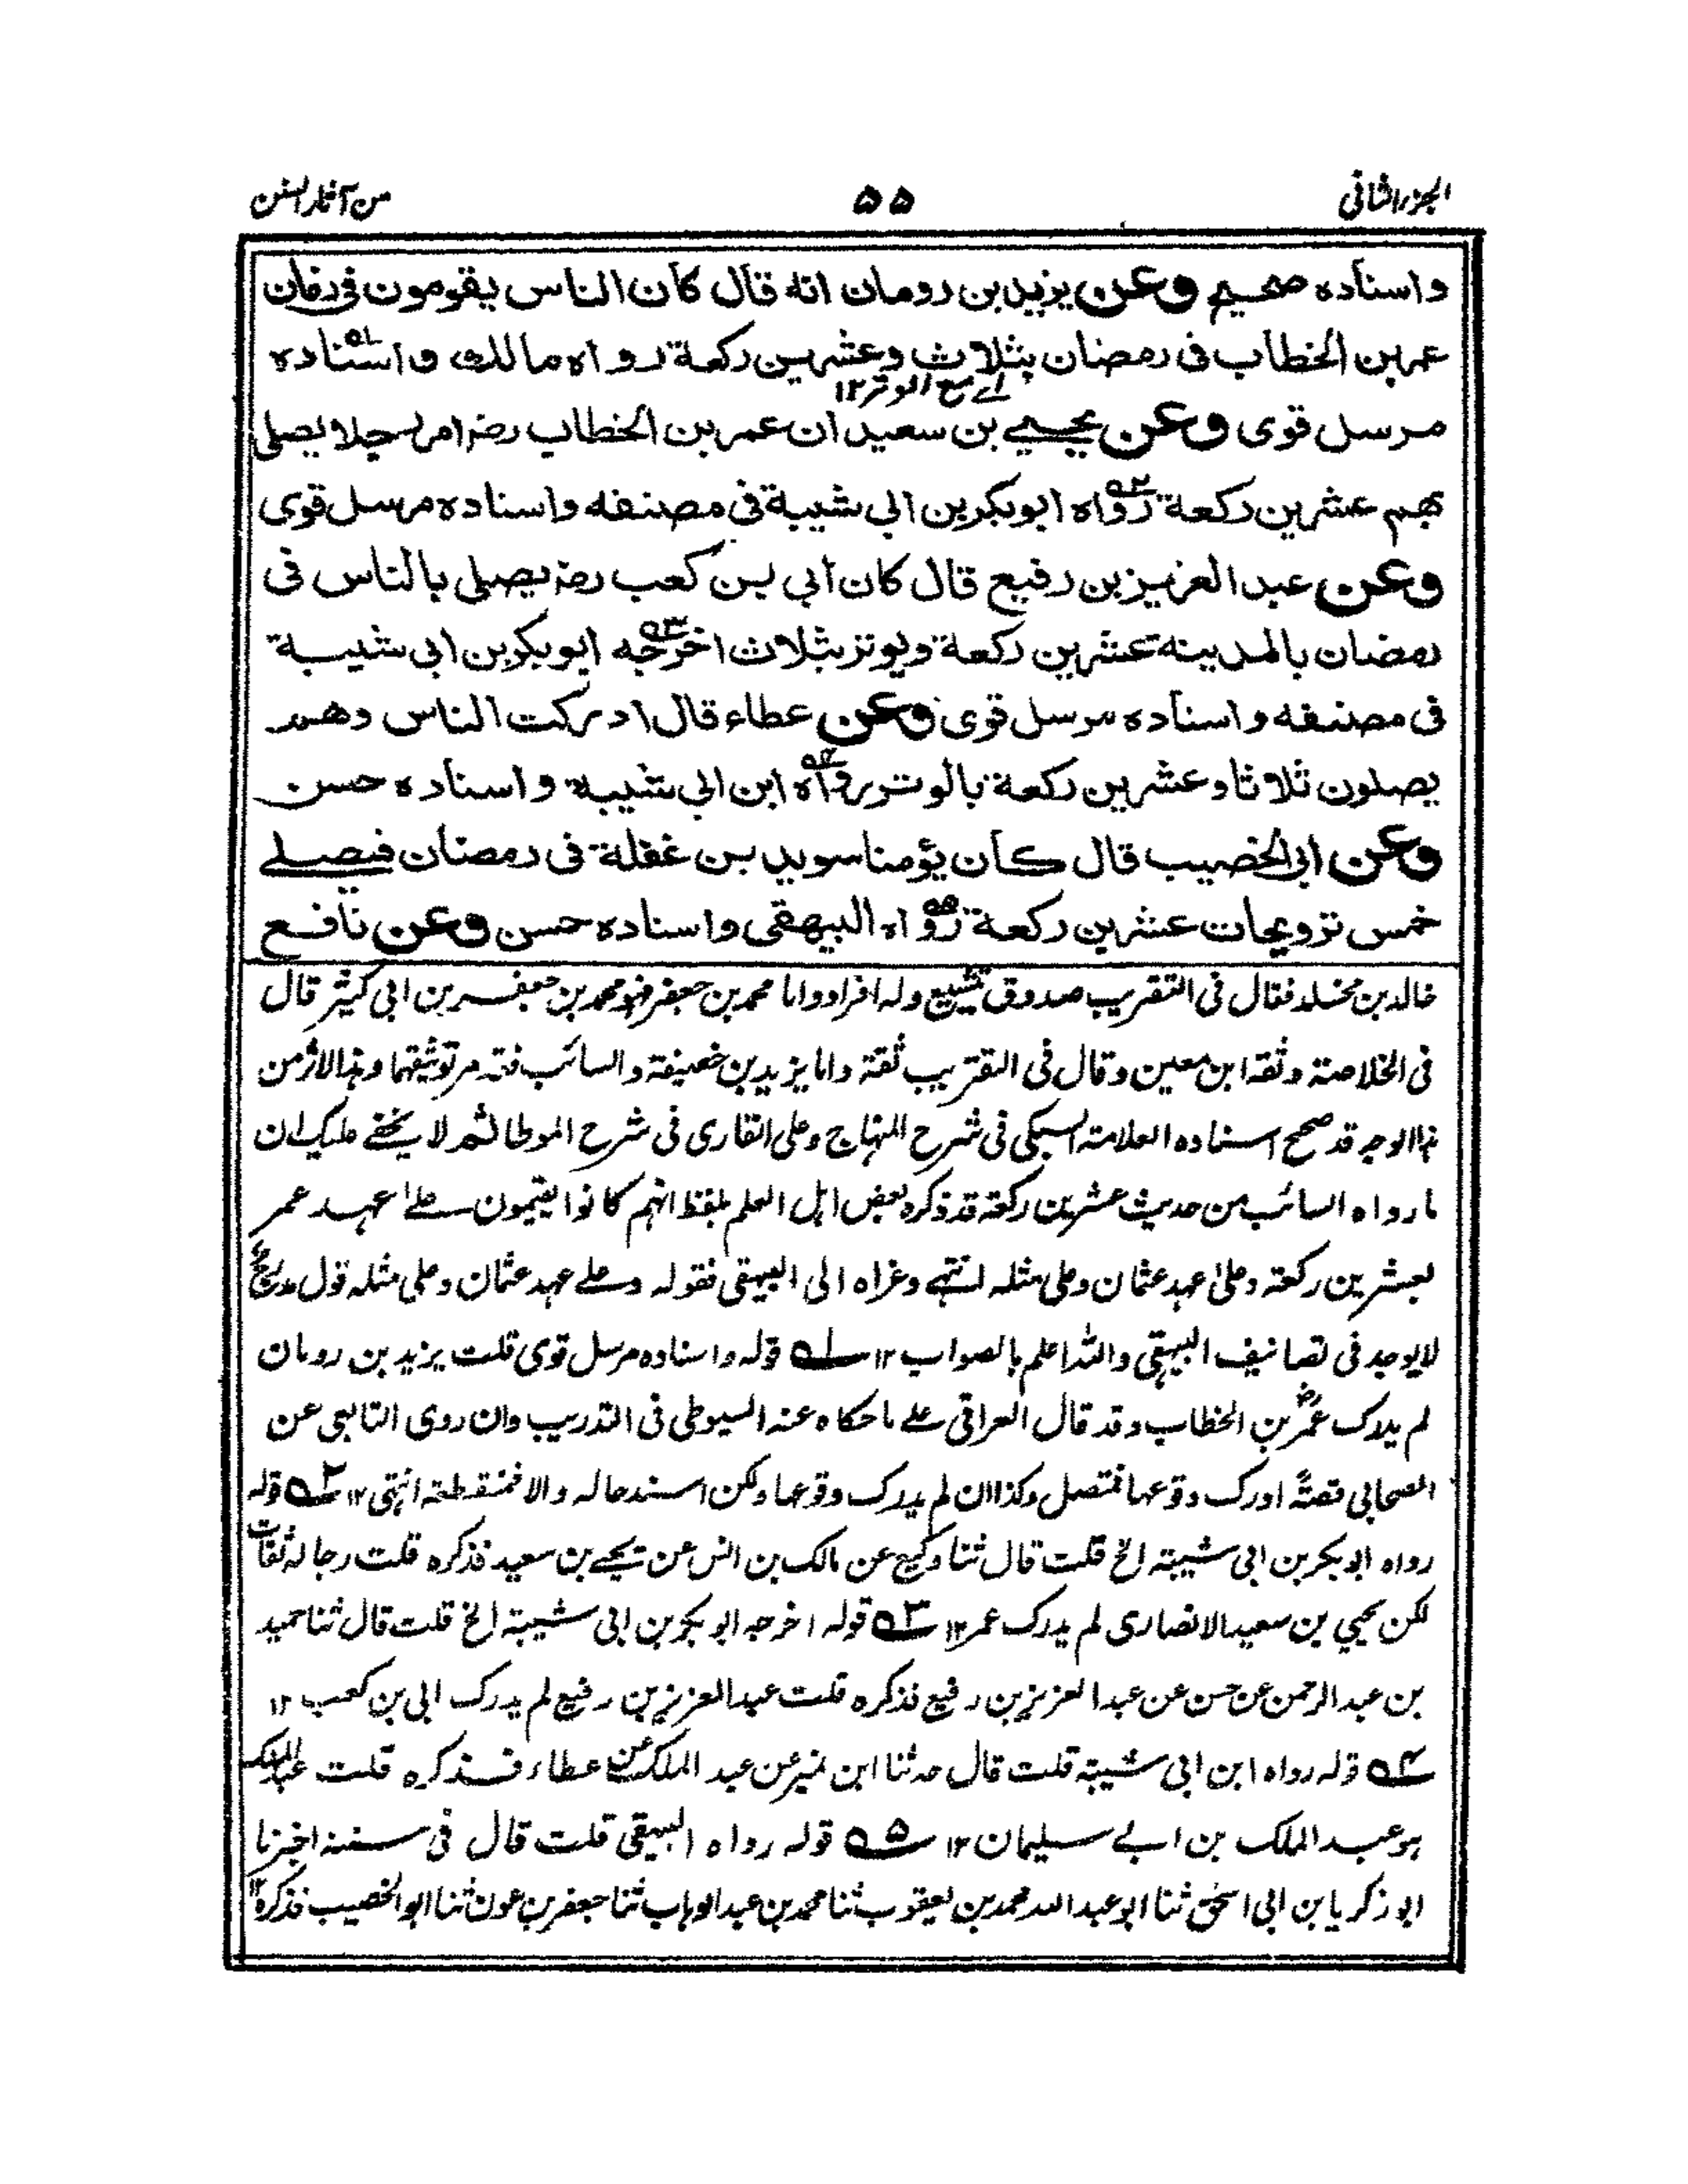 الجزء الثانی
۵۵
من آثار السنن
واسناده صحیح وعن یزید بن رومان انه قال کان الناس یقومون فی زمان
عمر بن الخطاب فی رمضان بثلاث وعشرین رکعة رواه مالك واسناده ۵۱
ای مع الوتر ۱۲
مرسل قوی وعن یحیی بن سعید ان عمر بن الخطاب رض امر رجلا یصلی
بهم عشرین رکعة رواه ۵۲ ابو بکر بن ابی شیبة فی مصنفه واسناده مرسل قوی
وعن عبد العزیز بن رفیع قال کان ابی بن کعب رض یصلی بالناس فی
رمضان بالمدینة عشرین رکعة ویوتر بثلاث اخرجه ۵۳ ابو بکر بن ابی شیبة
فی مصنفه واسناده مرسل قوی وعن عطاء قال ادرکت الناس وهم
یصلون ثلاثا وعشرین رکعة بالوتر رواه ۵۴ ابن ابی شیبة واسناده حسن
وعن ابی الخصیب قال کان یؤمنا سوید بن غفلة فی رمضان فیصلی
خمس ترویحات عشرین رکعة رواه ۵۵ البیهقی واسناده حسن وعن نافع
خالد بن مخلد فقال فی التقریب صدوق یتشیع وله افراد واما محمد بن جعفر فهو محمد بن جعفر بن ابی کثیر قال
فی الخلاصة وثقه ابن معین وقال فی التقریب ثقة واما یزید بن خصیفة والسائب فقد مر توثیقهما وهذا الاثر من
هذا الوجه قد صحح اسناده العلامة السبکی فی شرح المنهاج وعلی القاری فی شرح الموطا ثم لا یخفی علیک ان
ما رواه السائب من حدیث عشرین رکعة قد ذکره بعض اهل العلم بلفظ انهم کانوا یقیمون علی عهد عمر
بعشرین رکعة وعلی عهد عثمان وعلی مثله انتهی وعزاه الی البیهقی فقوله وعلی عهد عثمان وعلی مثله قول مدرج
لا یوجد فی تصانیف البیهقی والله اعلم بالصواب ۱۲ ۵۱ قوله واسناده مرسل قوی قلت یزید بن رومان
لم یدرک عمر رض بن الخطاب وقد قال العراقی علی ما حکاه عنه السیوطی فی التدریب وان روی التابعی عن
الصحابی قصة ادرک وقوعها فمتصل وکذا ان لم یدرک وقوعها ولکن اسند حاله والا فمنقطعة انتهی ۱۲ ۵۲ قوله
رواه ابو بکر بن ابی شیبة الخ قلت قال ثنا وکیع عن مالک بن انس عن یحیی بن سعید فذکره قلت رجاله ثقات
لکن یحیی بن سعید الانصاری لم یدرک عمر ۱۲ ۵۳ قوله اخرجه ابو بکر بن ابی شیبة الخ قلت قال ثنا حمید
بن عبد الرحمن عن حسن عن عبد العزیز بن رفیع فذکره قلت عبد العزیز بن رفیع لم یدرک ابی بن کعب ۱۲
۵۴ قوله رواه ابن ابی شیبة قلت قال حدثنا ابن نمیر عن عبد الملک عن عطاء فذکره قلت عبد الملک
هو عبد الملک بن ابی سلیمان ۱۲ ۵۵ قوله رواه البیهقی قلت قال فی سننه اخبرنا
ابو زکریا بن ابی اسحٰق ثنا ابو عبد الله محمد بن یعقوب ثنا محمد بن عبد الوهاب ثنا جعفر بن عون ثنا ابو الخصیب فذکره ۱۲